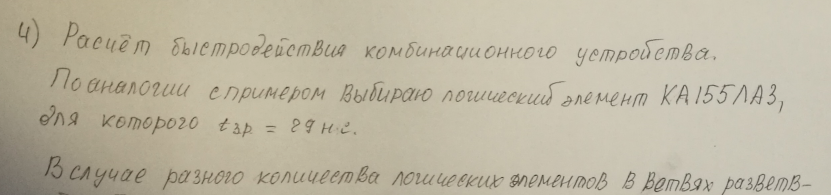 4) Расчёт быстродействия комбинационного устройства.
По аналогии с примером выбираю логический элемент КА155ЛА3,
для которого tзр. = 29 нс.
В случае разного количества логических элементов в ветвях разветв-